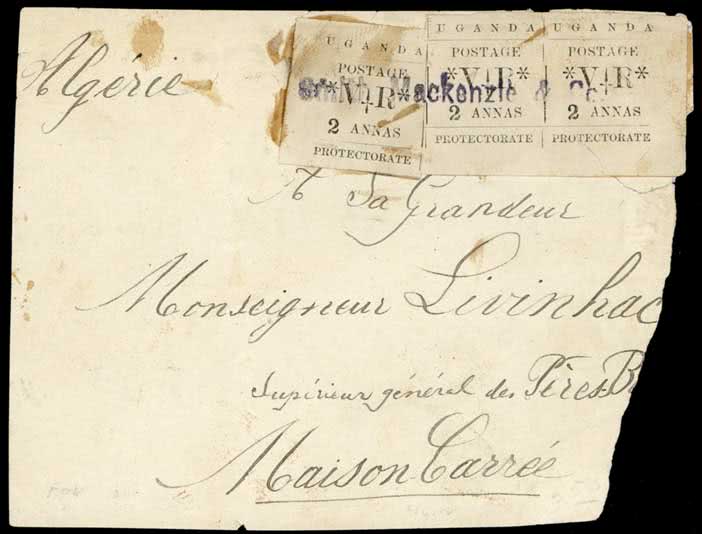 Algérie
UGANDA UGANDA UGANDA
POSTAGE POSTAGE POSTAGE
*V+R* *V+R* *V+R*
Smith Mackenzie & Co.
2 ANNAS 2 ANNAS 2 ANNAS
PROTECTORATE PROTECTORATE PROTECTORATE
A Sa Grandeur
Monseigneur Livinhac
Supérieur général des Pères-B
Maison Carrée